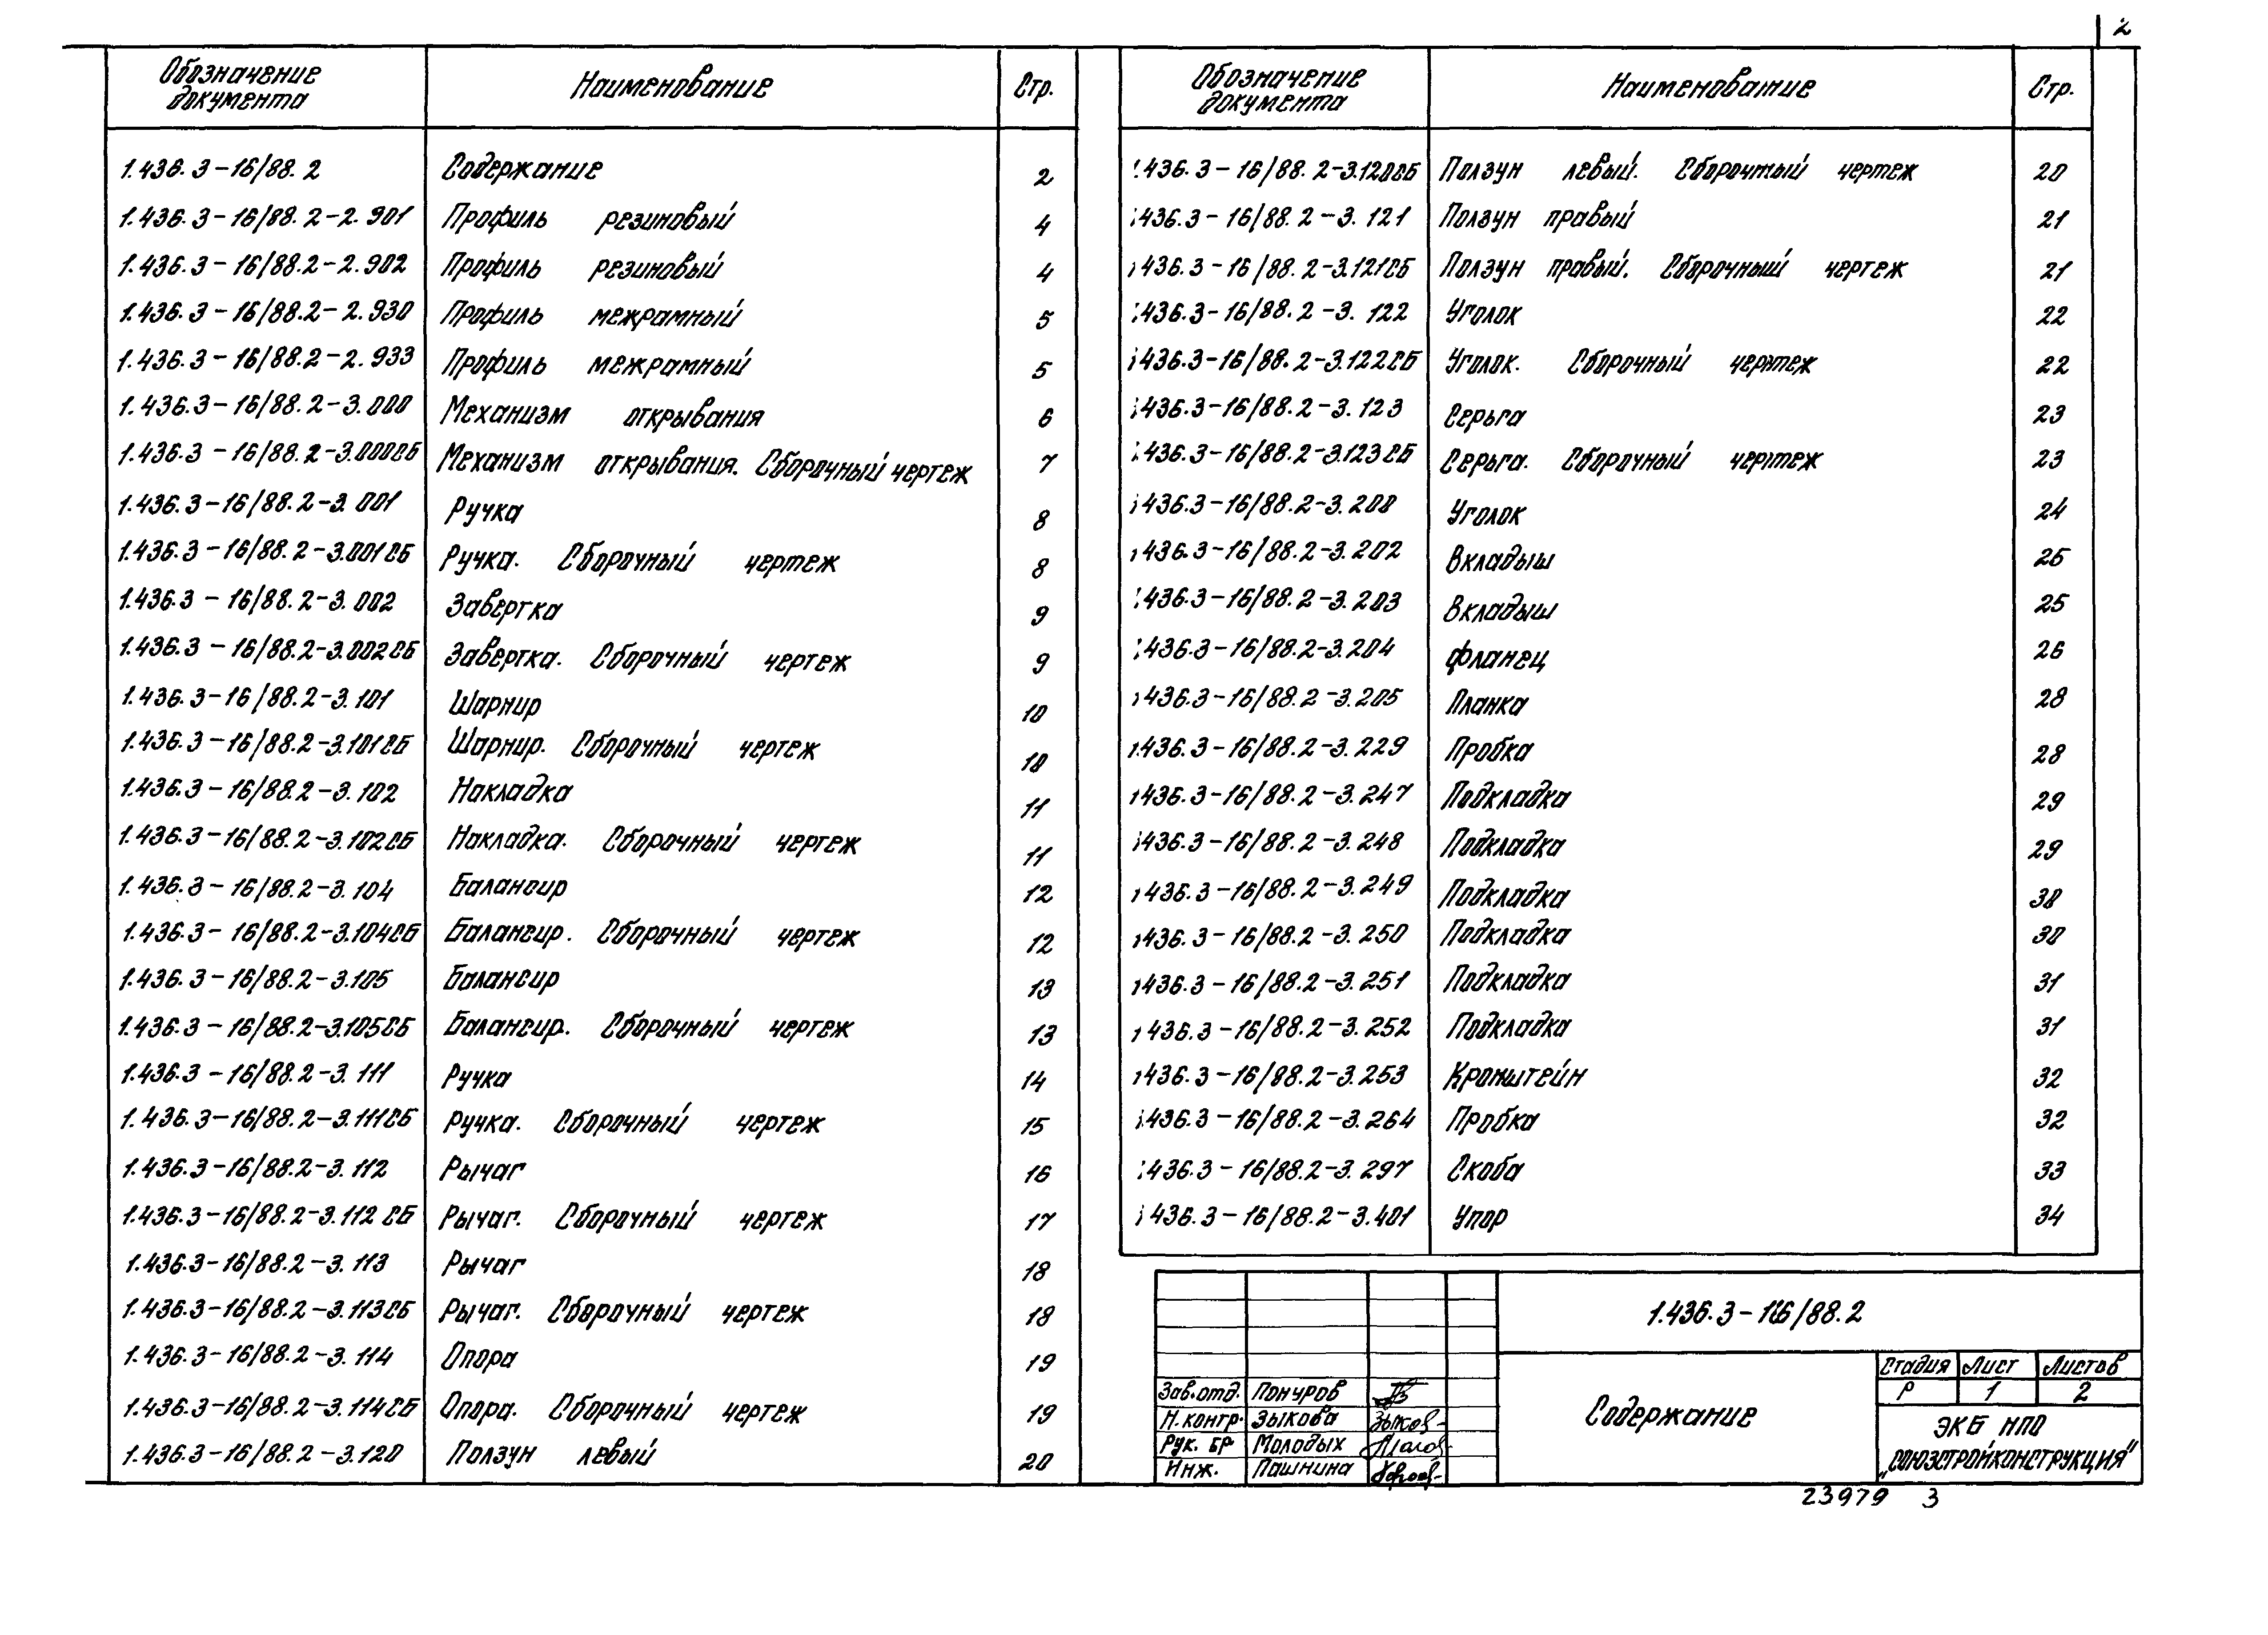 2
Обозначение документа Наименование Стр.
1.436.3-16/88.2 Содержание 2
1.436.3-16/88.2-2.901 Профиль резиновый 4
1.436.3-16/88.2-2.902 Профиль резиновый 4
1.436.3-16/88.2-2.930 Профиль межрамный 5
1.436.3-16/88.2-2.933 Профиль межрамный 5
1.436.3-16/88.2-3.000 Механизм открывания 6
1.436.3-16/88.2-3.000СБ Механизм открывания. Сборочный чертеж 7
1.436.3-16/88.2-3.001 Ручка 8
1.436.3-16/88.2-3.001СБ Ручка. Сборочный чертеж 8
1.436.3-16/88.2-3.002 Завертка 9
1.436.3-16/88.2-3.002СБ Завертка. Сборочный чертеж 9
1.436.3-16/88.2-3.101 Шарнир 10
1.436.3-16/88.2-3.101СБ Шарнир. Сборочный чертеж 10
1.436.3-16/88.2-3.102 Накладка 11
1.436.3-16/88.2-3.102СБ Накладка. Сборочный чертеж 11
1.436.3-16/88.2-3.104 Балансир 12
1.436.3-16/88.2-3.104СБ Балансир. Сборочный чертеж 12
1.436.3-16/88.2-3.105 Балансир 13
1.436.3-16/88.2-3.105СБ Балансир. Сборочный чертеж 13
1.436.3-16/88.2-3.111 Ручка 14
1.436.3-16/88.2-3.111СБ Ручка. Сборочный чертеж 15
1.436.3-16/88.2-3.112 Рычаг 16
1.436.3-16/88.2-3.112СБ Рычаг. Сборочный чертеж 17
1.436.3-16/88.2-3.113 Рычаг 18
1.436.3-16/88.2-3.113СБ Рычаг. Сборочный чертеж 18
1.436.3-16/88.2-3.114 Опора 19
1.436.3-16/88.2-3.114СБ Опора. Сборочный чертеж 19
1.436.3-16/88.2-3.120 Ползун левый 20
Обозначение документа Наименование Стр.
1.436.3-16/88.2-3.120СБ Ползун левый. Сборочный чертеж 20
1.436.3-16/88.2-3.121 Ползун правый 21
1.436.3-16/88.2-3.121СБ Ползун правый. Сборочный чертеж 21
1.436.3-16/88.2-3.122 Уголок 22
1.436.3-16/88.2-3.122СБ Уголок. Сборочный чертеж 22
1.436.3-16/88.2-3.123 Серьга 23
1.436.3-16/88.2-3.123СБ Серьга. Сборочный чертеж 23
1.436.3-16/88.2-3.200 Уголок 24
1.436.3-16/88.2-3.202 Вкладыш 25
1.436.3-16/88.2-3.203 Вкладыш 25
1.436.3-16/88.2-3.204 Фланец 26
1.436.3-16/88.2-3.205 Планка 28
1.436.3-16/88.2-3.229 Пробка 28
1.436.3-16/88.2-3.247 Подкладка 29
1.436.3-16/88.2-3.248 Подкладка 29
1.436.3-16/88.2-3.249 Подкладка 30
1.436.3-16/88.2-3.250 Подкладка 30
1.436.3-16/88.2-3.251 Подкладка 31
1.436.3-16/88.2-3.252 Подкладка 31
1.436.3-16/88.2-3.253 Кронштейн 32
1.436.3-16/88.2-3.264 Пробка 32
1.436.3-16/88.2-3.297 Скоба 33
1.436.3-16/88.2-3.401 Упор 34
1.436.3-16/88.2
Зав.отд. Пончров
Н.контр. Зыкова Зыков-
Рук. бр Молодых
Инж. Пашнина
Содержание
Стадия Лист Листов
Р 1 2
ЭКБ НПО
„СОЮЗСТРОЙКОНСТРУКЦИЯ"
23979 3